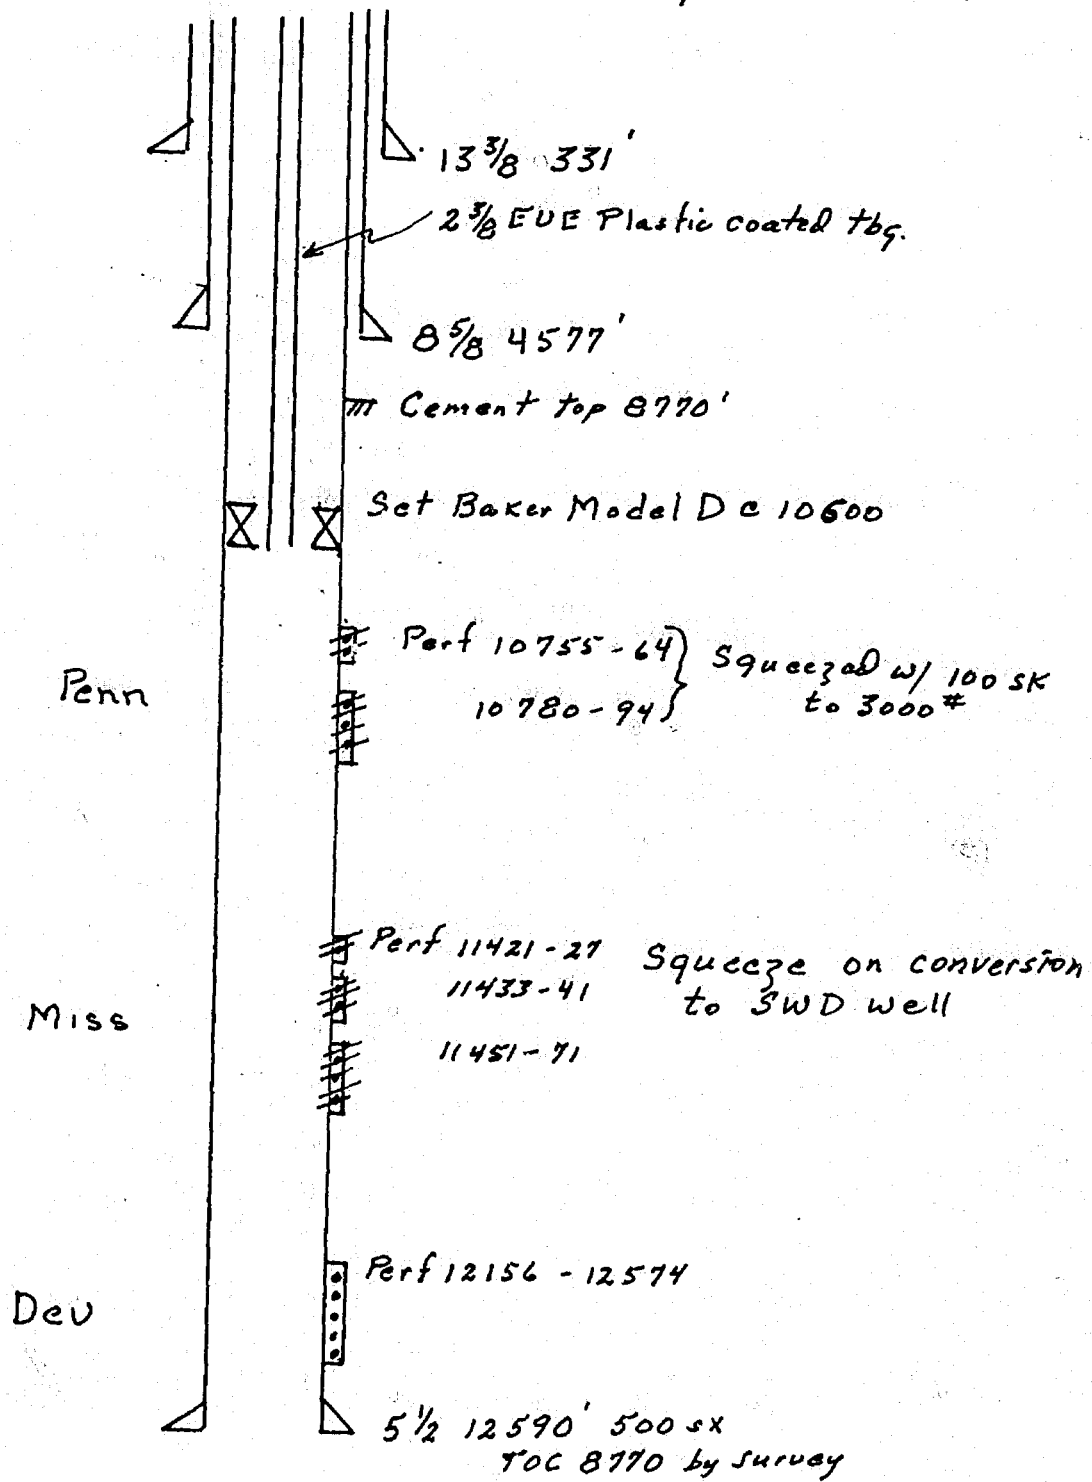 13 3/8 331'
2 3/8 EUE Plastic coated tbg.
8 5/8 4577'
Cement top 8770'
Set Baker Model D @ 10600
Penn
Perf 10755-64 } Squeezed w/ 100 SK
10780-94 } to 3000#
Miss
Perf 11421-27 Squeeze on conversion
11433-41 to SWD well
11451-71
Dev
Perf 12156 - 12574
5 1/2 12590' 500 sx
TOC 8770 by survey